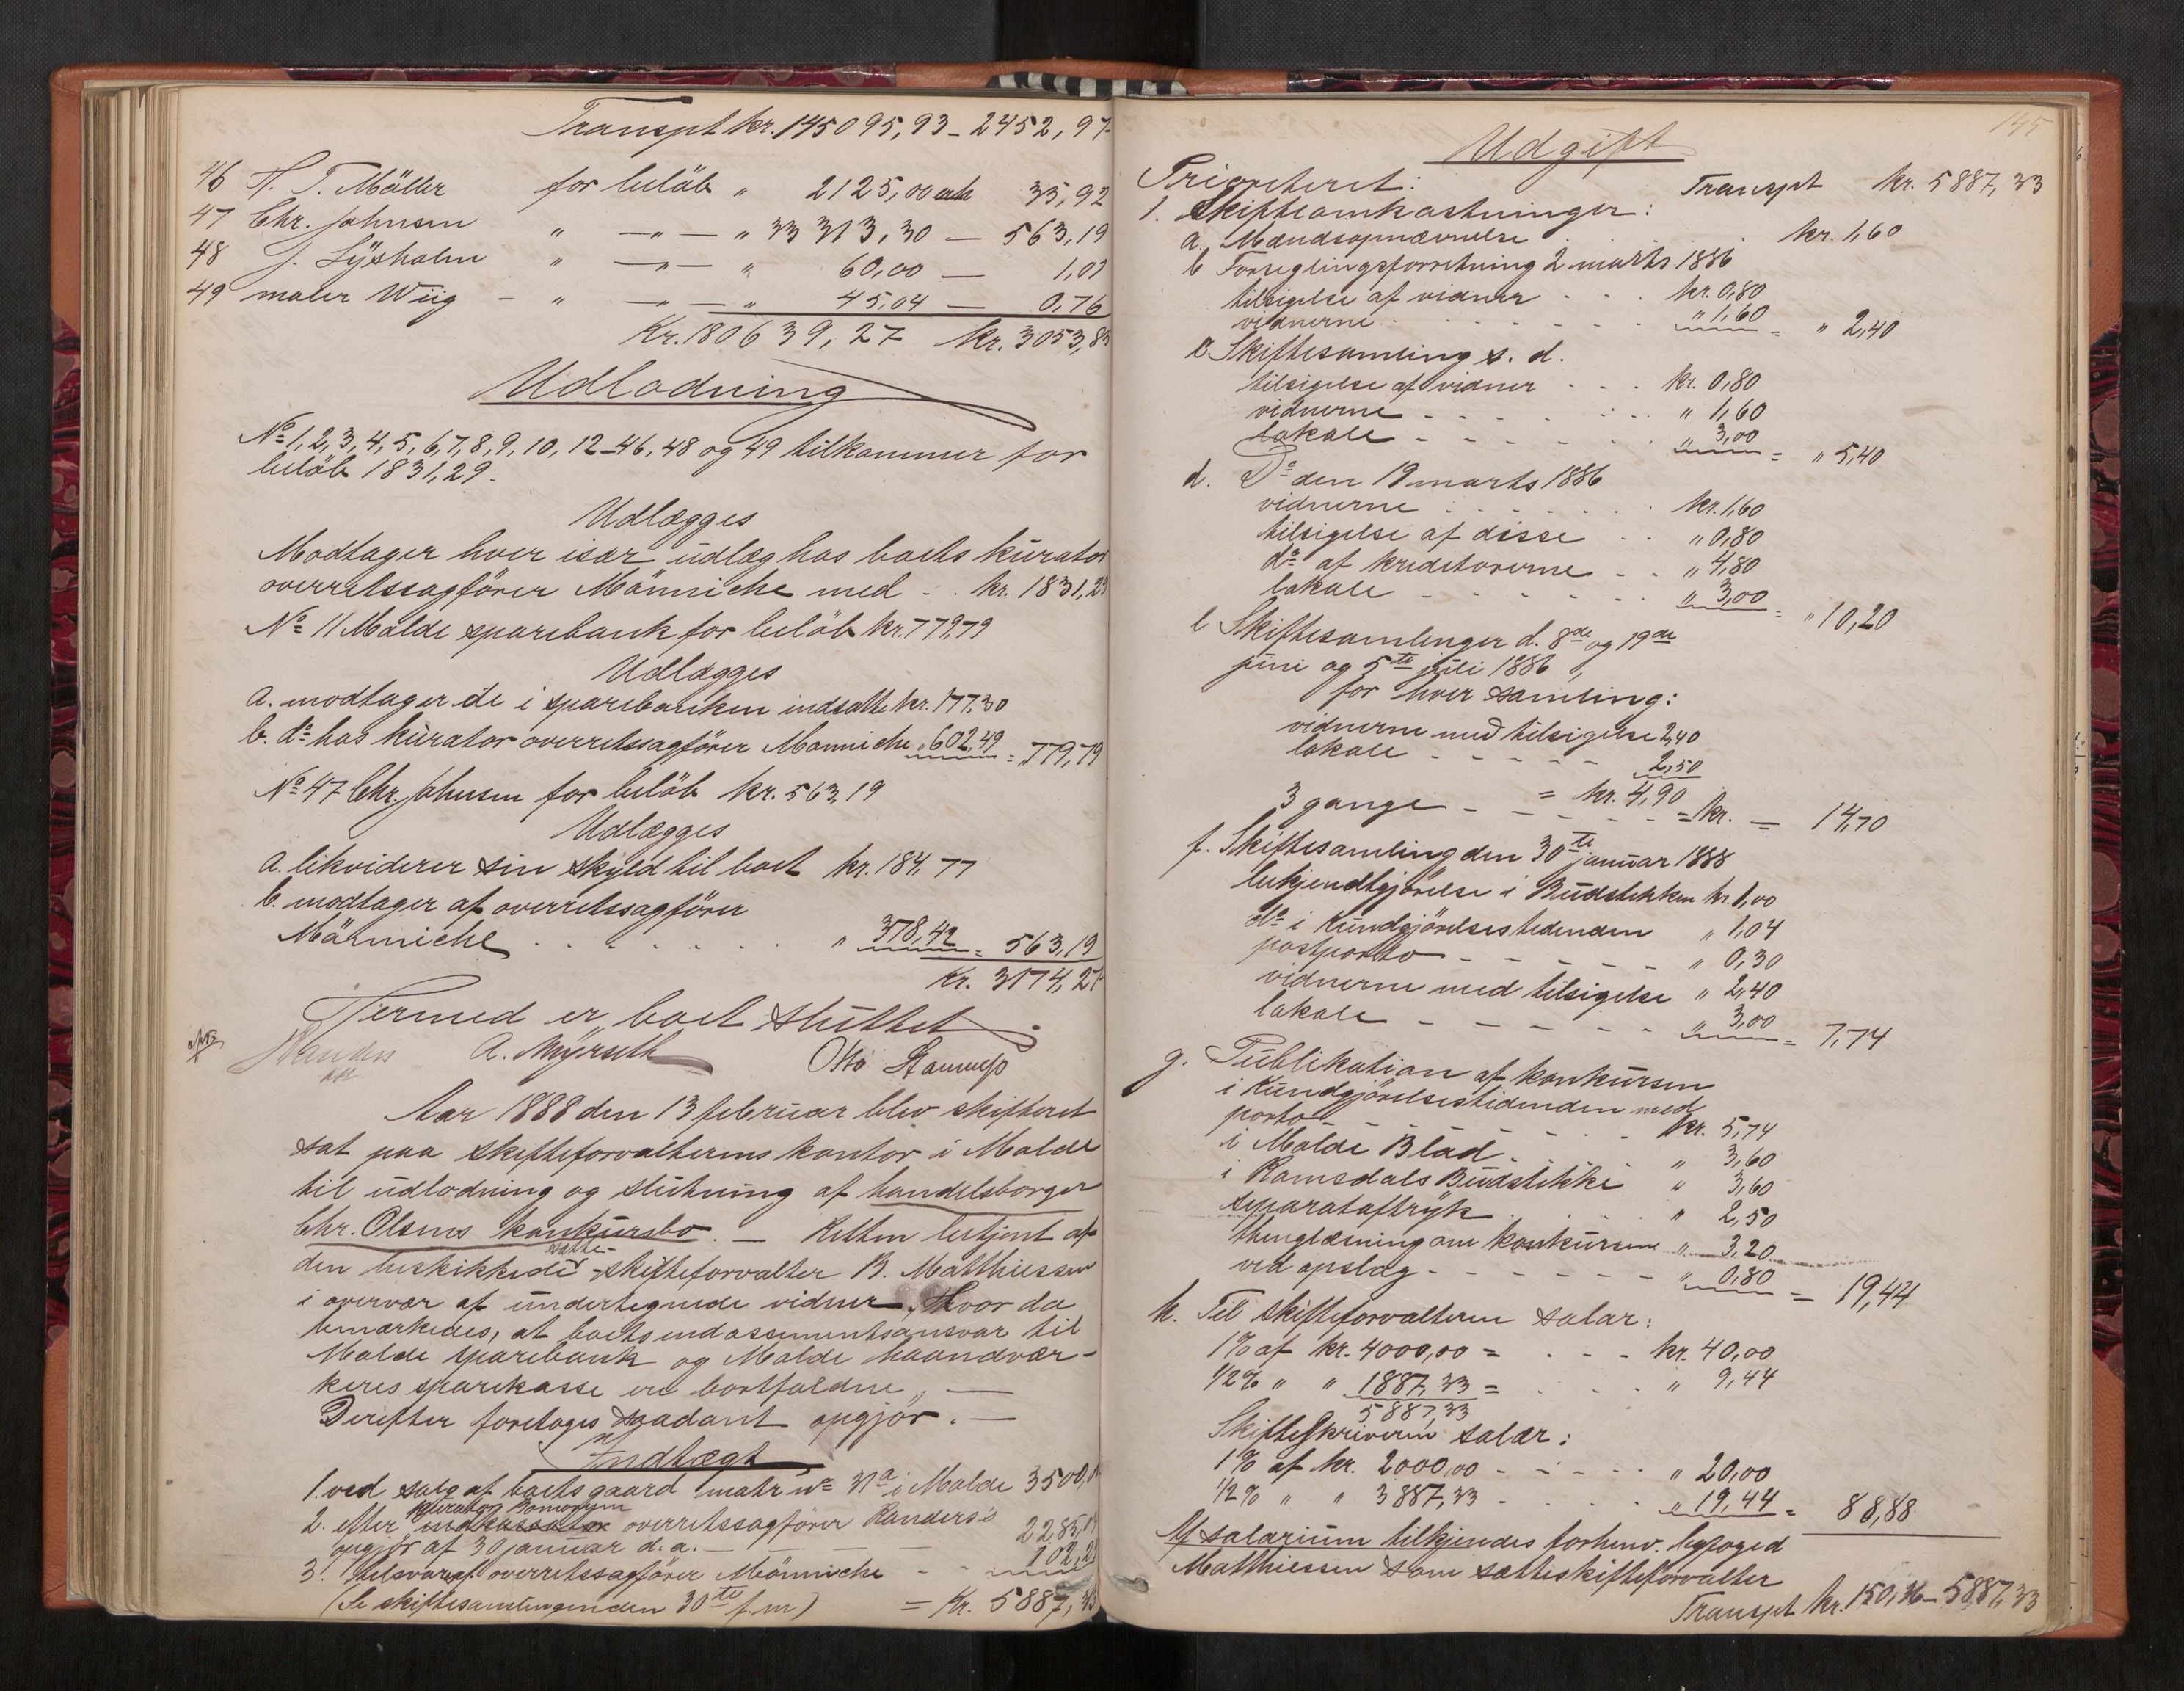 Transpt kr. 145095,93 – 2452,97
46 H. T. Møller for beløb " 2125,00 udl. 35,92
47 Chr. Johnsen " —"— " 33 313,30 — 563,19
48 J. Lysholm " —"— " 60,00 — 1,01
49 maler Wiig – " —"— " 45,04 — 0,76
Kr. 180639,27 kr. 3053,85
Udlodning
No 1, 2, 3, 4, 5, 6, 7, 8, 9, 10, 12–46, 48 og 49 tilkommer for
beløb 1831,29.
Udlægges
Modtager hver især udlæg hos boets kurator
overretssagfører Männiche med . . kr. 1831,29
No 11 Molde sparebank for beløb kr. 779,79
Udlægges
a. modtager de i sparebanken indsatte kr. 177,30
b. do hos kurator overretssagfører Männiche " 602,49 = 779,79
No 47 Chr. Johnsen for beløb kr. 563,19
Udlægges
a. likviderer sin skyld til boet kr. 184,77
b. modtager af overretssagfører
Männiche . . . . . . " 378,42 = 563,19
Kr. 3174,27
Hermed er boet sluttet
A. Myrseth Otto
Aar 1888 den 13 februar blev skifteret
sat paa skifteforvalterens kontor i Molde
til udlodning og slutning af handelsborger
Chr. Olsens konkursbo. — Retten betjent af
den beskikkede sætte-skifteforvalter B. Matthiessen
i overvær af undertegnede vidner. Hvor da
bemærkedes, at boets endossementsansvar til
Molde sparebank og Molde haandvær-
keres sparekasse ere bortfaldne. —
Derefter foretoges saadant opgjør. —
Indtægt
1. ved salg af boets gaard matr no 31a i Molde 3500,00
2. efter overretssagfører Randers's
opgjør af 30 januar d. a. — — — — 2285,
3. tilsvaret overretssagfører Männiche - - 102,2
(Se skiftesamlingen den 30te f. m.) = Kr. 5887,33
145
Udgift
Prioriteret: Transpt kr. 5887,33
1. Skifteomkostninger:
a. Mændsopnævnelse . . . . kr. 1,60
b Forseglingsforretning 2 marts 1886
tilsigelse af vidner . . . kr. 0,80
vidnerne . . . . . . " 1,60 = " 2,40
c. Skiftesamling s. d.
tilsigelse af vidner . . . kr. 0,80
vidnerne . . . . . " 1,60
lokale - - - - - . " 3,00 = " 5,40
d. Do den 19 marts 1886
vidnerne . . . . . . kr. 1,60
tilsigelse af disse . . " 0,80
do af kreditorerne - . " 4,80
lokale - - - - - . " 3,00 = " 10,20
e Skiftesamlinger d. 8de og 19de
juni og 5te juli 1886,
for hver samling:
vidnerne med tilsigelse 2,40
lokale - - - - - 2,50
= kr. 4,90
3 gange - - - - - = kr. = 14,70
f. Skiftesamling den 30te januar 1888
bekjendtgjørelse i Budstikken kr. 1,00
do i Kundgjørelsestidenden " 1,04
postporto - - - - - " 0,30
vidnerne med tilsigelse " 2,40
lokale - - - - - - " 3,00 = 7,74
g. Publikation af konkursen
i Kundgjørelsestidenden med
porto - - - - - - kr. 5,74
i Molde Blad . . . . " 3,60
i Romsdals Budstikke " 3,60
separataftryk . . . . " 2,50
thinglæsning om konkursen " 3,20
ved opslag - - - - - - " 0,80 = 19,44
h. Til skifteforvalteren salær:
1% af kr. 4000,00 = . - - kr. 40,00
1/2% " " 1887,33 = . . . " 9,44
5887,33
Skifteskriveren salær:
1% af kr. 2000,00 - - - - . " 20,00
1/2% " " 3887,33 - . . . " 19,44 = 88,88
Af salarium tilkjendes forhenv. byfoged
Matthiessen som sætteskifteforvalter
Transpt kr. 150,36 – 5887,33